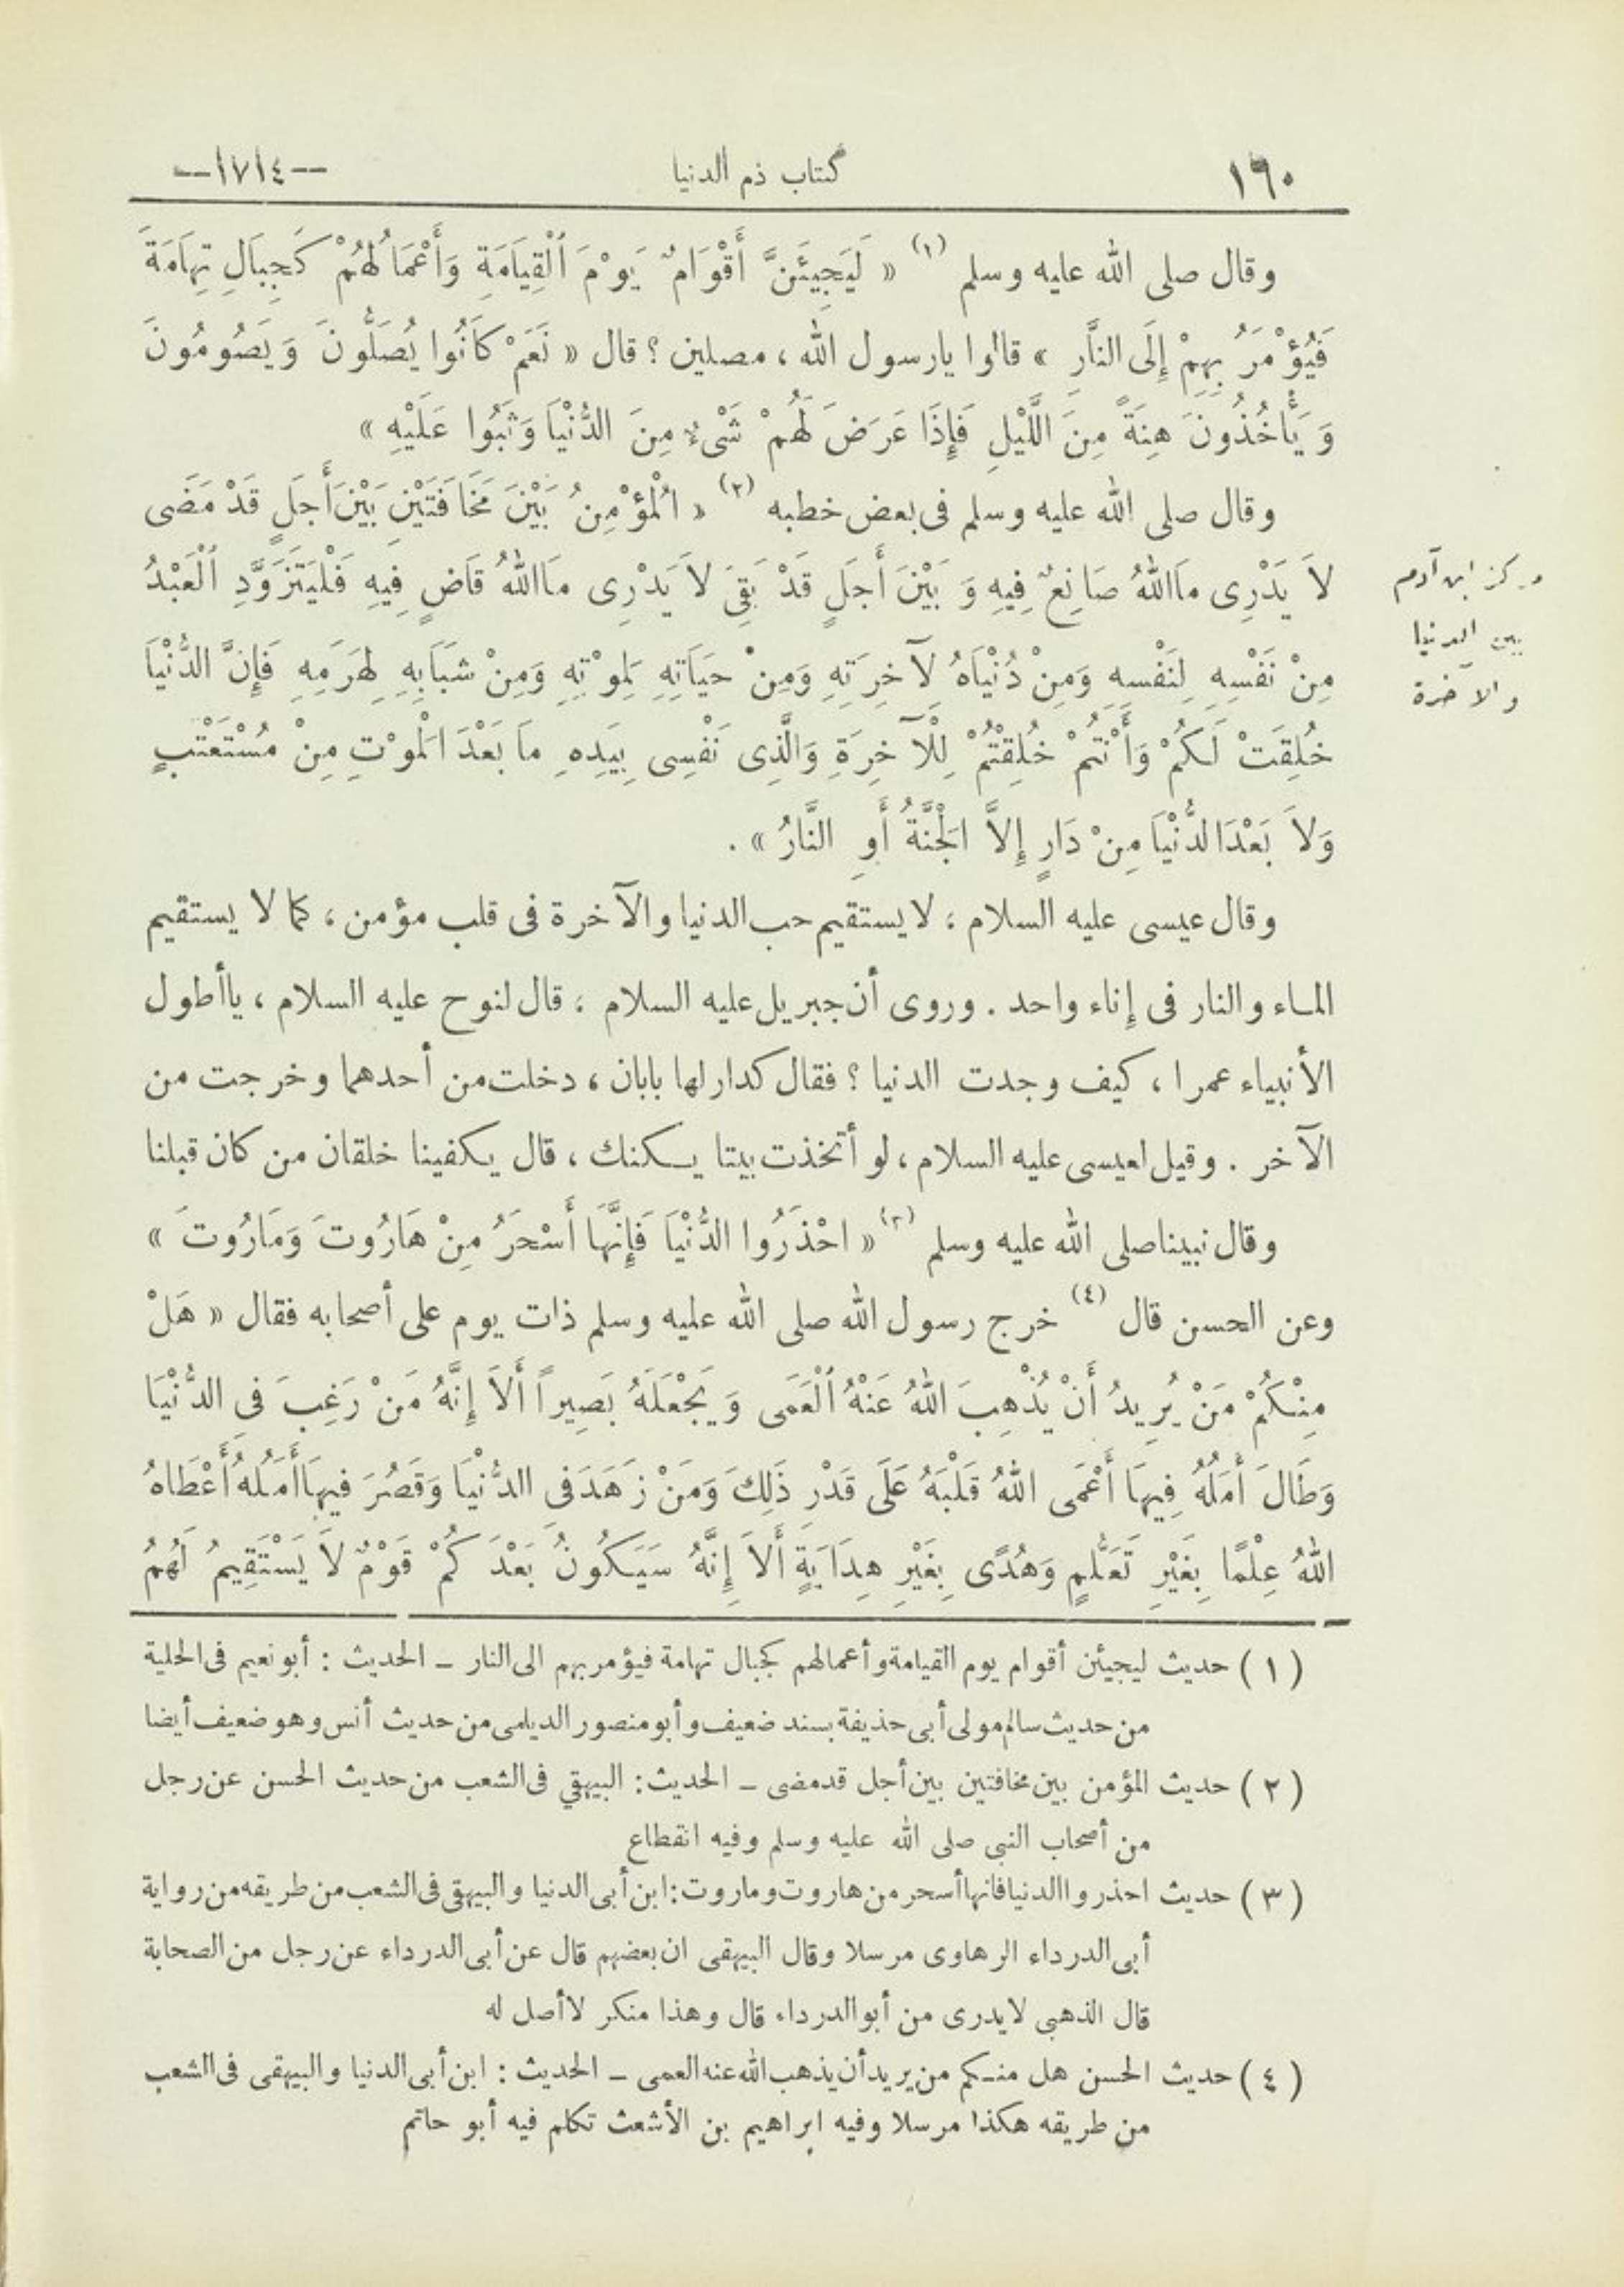 ١٦٠ كتاب ذم الدنيا --١٧١٤--
وقال صلى الله عليه وسلم (١) « لَيَجِيئَنَّ أَقْوَامٌ يَوْمَ الْقِيَامَةِ وَأَعْمَالُهُمْ كَجِبَالِ تِهَامَةَ
فَيُؤْمَرُ بِهِمْ إِلَى النَّارِ » قالوا يارسول الله ، مصلين ؟ قال « نَعَمْ كَانُوا يُصَلُّونَ وَيَصُومُونَ
وَيَأْخُذُونَ هِنَةً مِنَ اللَّيْلِ فَإِذَا عَرَضَ لَهُمْ شَىْءٌ مِنَ الدُّنْيَا وَثَبُوا عَلَيْهِ »
وقال صلى الله عليه وسلم فى بعض خطبه (٢) « الْمُؤْمِنُ بَيْنَ مَخَافَتَيْنِ بَيْنَ أَجَلٍ قَدْ مَضَى
لَا يَدْرِى مَااللهُ صَانِعٌ فِيهِ وَبَيْنَ أَجَلٍ قَدْ بَقِىَ لَا يَدْرِى مَااللهُ قَاضٍ فِيهِ فَلْيَتَزَوَّدِ الْعَبْدُ
مِنْ نَفْسِهِ لِنَفْسِهِ وَمِنْ دُنْيَاهُ لآخِرَتِهِ وَمِنْ حَيَاتِهِ لِمَوْتِهِ وَمِنْ شَبَابِهِ لِهَرَمِهِ فَإِنَّ الدُّنْيَا
خُلِقَتْ لَكُمْ وَأَنْتُمْ خُلِقْتُمْ لِلْآخِرَةِ وَالَّذِى نَفْسِى بِيَدِهِ مَا بَعْدَ الْمَوْتِ مِنْ مُسْتَعْتَبٍ
وَلَا بَعْدَ الدُّنْيَا مِنْ دَارٍ إِلَّا الْجَنَّةُ أَوِ النَّارُ » .
مركز ابن آدم
بين الدنيا
والآخرة
وقال عيسى عليه السلام ؛ لايستقيم حب الدنيا والآخرة فى قلب مؤمن ، كما لا يستقيم
المـاء والنار فى إناء واحد . وروى أن جبريل عليه السلام ؛ قال لنوح عليه السلام ، ياأطول
الأنبياء عمرا ، كيف وجدت الدنيا ؟ فقال كدار لها بابان ، دخلت من أحدهما وخرجت من
الآخر . وقيل لعيسى عليه السلام ، لو أتخذت بيتا يـكنك ، قال يكفينا خلقان من كان قبلنا
وقال نبيناصلى الله عليه وسلم (٣) « احْذَرُوا الدُّنْيَا فَإِنَّهَا أَسْحَرُ مِنْ هَارُوتَ وَمَارُوتَ »
وعن الحسن قال (٤) خرج رسول الله صلى الله عليه وسلم ذات يوم على أصحابه فقال « هَلْ
مِنْـكُمْ مَنْ يُرِيدُ أَنْ يُذْهِبَ اللهُ عَنْهُ الْعَمَى وَيَجْعَلَهُ بَصِيراً أَلَا إِنَّهُ مَنْ رَغِبَ فى الدُّنْيَا
وَطَالَ أَمَلُهُ فِيهَا أَعْمَى اللهُ قَلْبَهُ عَلَى قَدْرِ ذَلِكَ وَمَنْ زَهَدَ فى الدُّنْيَا وَقَصُرَ فيهَا أَمَلُهُ أَعْطَاهُ
اللهُ عِلْمًا بِغَيْرِ تَعَلُّمٍ وَهُدًى بِغَيْرِ هِدَايَةٍ أَلَا إِنَّهُ سَيَـكُونُ بَعْدَ كُمْ قَوْمٌ لَا يَسْتَقِيمُ لَهُمُ
( ١ ) حديث ليجيئن أقوام يوم القيامة وأعمالهم كجبال تهامة فيؤمر بهم الى النار ـ الحديث : أبو نعيم فى الحلية
من حديث سالم مولى أبى حذيفة بسند ضعيف وأبو منصور الديلمى من حديث أنس وهو ضعيف أيضا
( ٢ ) حديث المؤمن بين مخافتين بين أجل قدمضى ـ الحديث : البيهقي فى الشعب من حديث الحسن عن رجل
من أصحاب النبى صلى الله عليه وسلم وفيه انقطاع
( ٣ ) حديث احذروا الدنيا فانها أسحر من هاروت وماروت : ابن أبى الدنيا والبيهقى فى الشعب من طريقه من رواية
أبى الدرداء الرهاوى مرسلا وقال البيهقى ان بعضهم قال عن أبى الدرداء عن رجل من الصحابة
قال الذهبى لايدرى من أبو الدرداء قال وهذا منكر لاأصل له
( ٤ ) حديث الحسن هل منـكم من يريد أن يذهب الله عنه العمى ـ الحديث : ابن أبى الدنيا والبيهقى فى الشعب
من طريقه هكذا مرسلا وفيه ابراهيم بن الأشعث تكلم فيه أبو حاتم